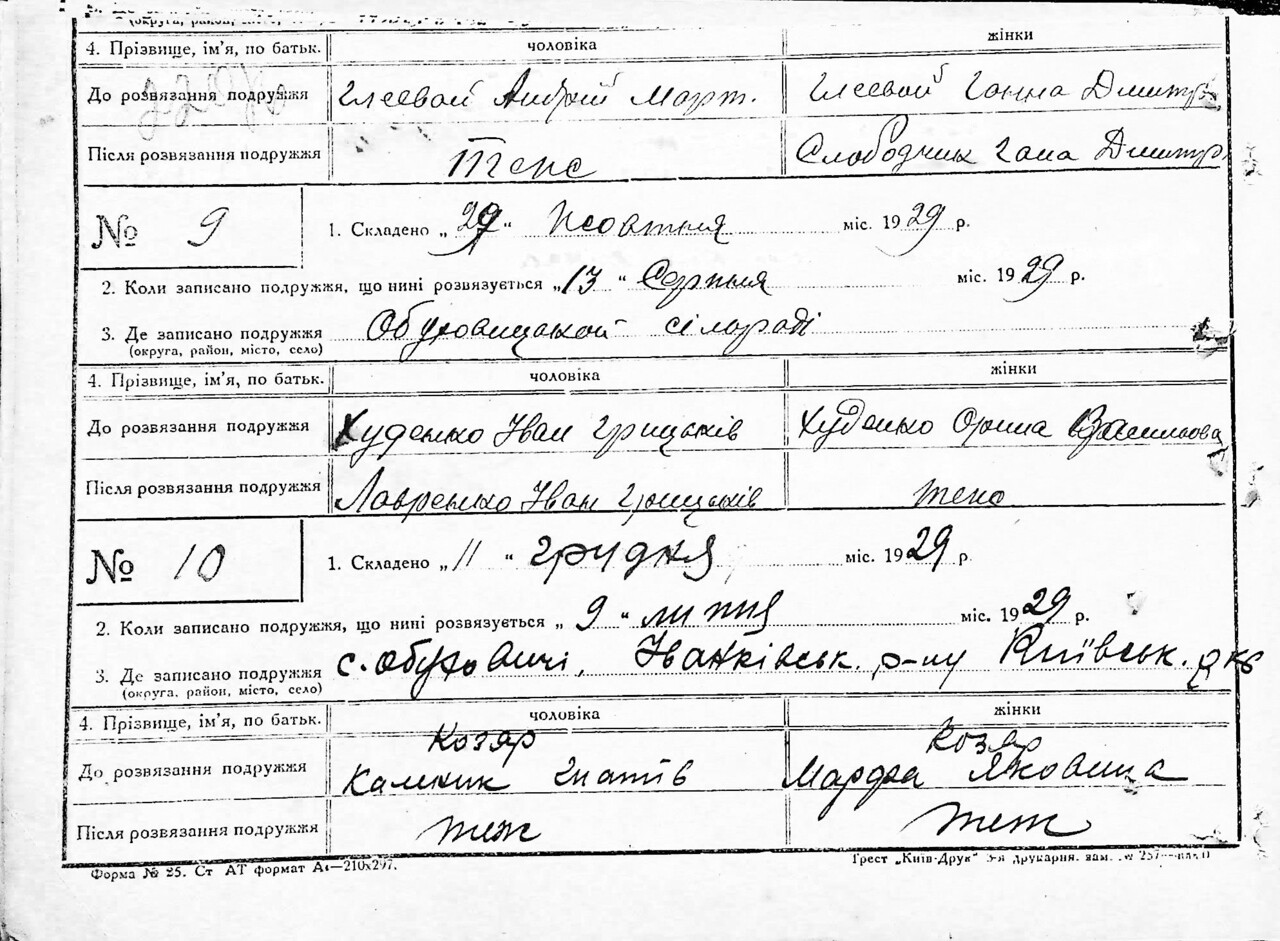 (округа, район, місто,
4. Прізвище, ім'я, по батьк. чоловіка жінки
До розвязання подружжя Андрій Март. Ганна Дмитр.
Після розвязання подружжя Теж Слободчик Гана Дмитр.
№ 9 1. Складено „29“ Жовтня міс. 1929 р.
2. Коли записано подружжя, що нині розвязується „13“ Серпня міс. 1929 р.
3. Де записано подружжя Обуховицькой сільраді
(округа, район, місто, село)
4. Прізвище, ім'я, по батьк. чоловіка жінки
До розвязання подружжя Худенко Іван Грицьків Худенко Орина Васильова
Після розвязання подружжя Лавренко Іван Грицьків
№ 10 1. Складено „11“ грудня міс. 1929 р.
2. Коли записано подружжя, що нині розвязується „9“ липня міс. 1929 р.
3. Де записано подружжя с. Обуховичі, Іванківськ. р-ну Київськ. окр
(округа, район, місто, село)
4. Прізвище, ім'я, по батьк. чоловіка жінки
Козяр Козяр
До розвязання подружжя Гнатів Марфа Яковина
Після розвязання подружжя теж теж
Форма № 25. Ст АТ формат А4—210х297. Трест „Київ-Друк“ друкарня. зам.